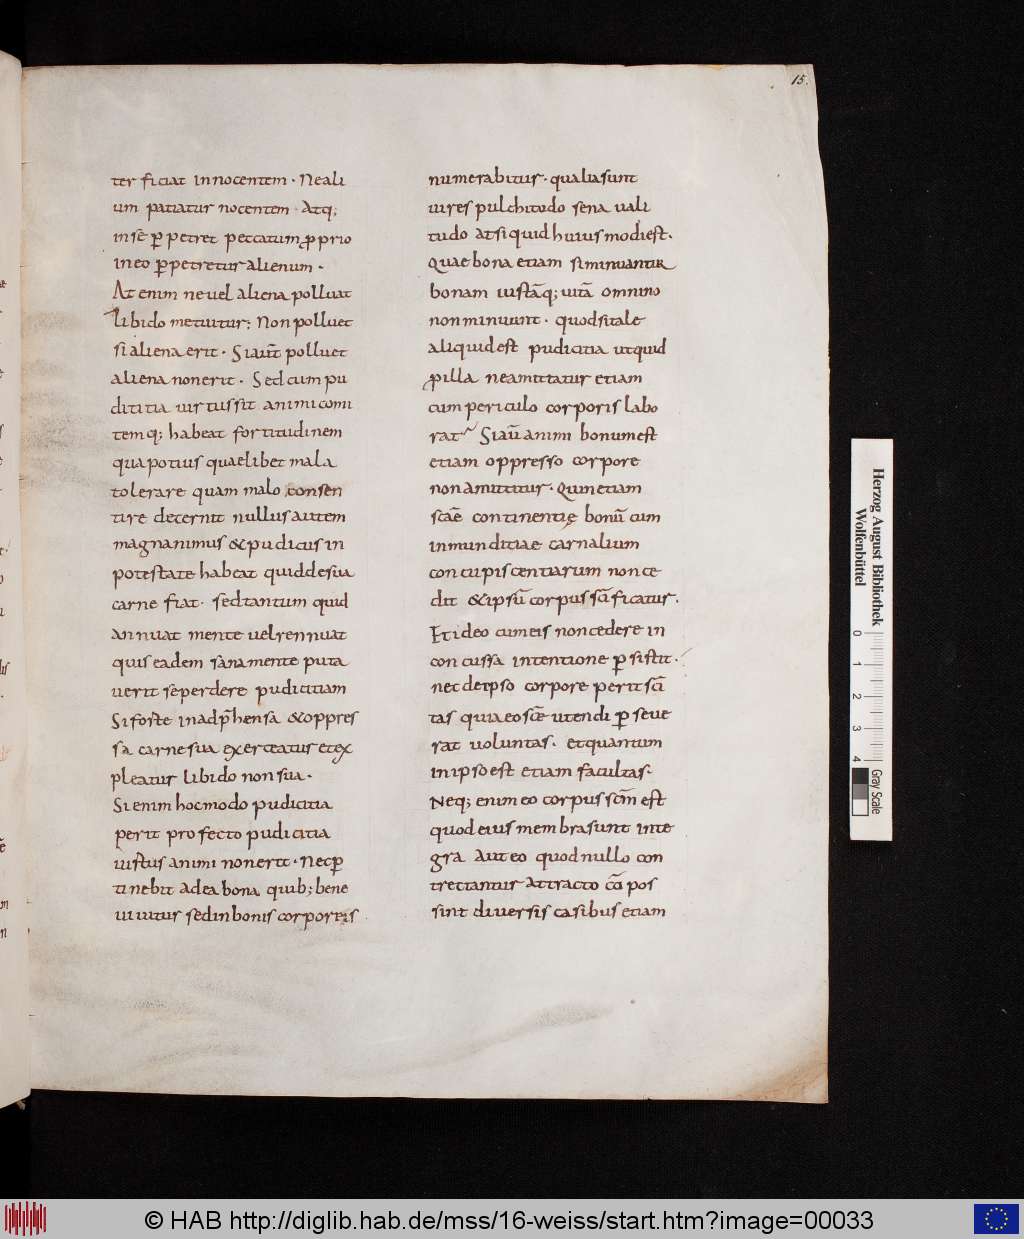 15.
ter ficiat innocentem · Neali
um patiatur nocentem · Atq;
insē ꝑpetret peccatum ꝓprio
ineo ꝑpetretur alienum ·
At enim ne uel aliena polluat
libido metuitur; Non polluet
si aliena erit · Siaut̄ polluet
aliena non erit · Sed cum pu
dicitia uirtus sit animi comi
temq; habeat fortitudinem
qua potius quaelibet mala
tolerare quam malo consen
tire decernit nullus autem
magnanimus & pudicus in
potestate habeat quid de sua
carne fiat · sed tantum quid
annuat mente uel rennuat
quis eadem sana mente puta
uerit se perdere pudicitiam
Si forte inadp̄hensa & oppres
sa carne sua exerceatur et ex
pleatur libido non sua ·
Si enim hoc modo pudicitia
perit profecto pudicitia
uirtus animi non erit · Nec ꝑ
tinebit ad ea bona quib; bene
uiuitur sed in bonis corporis
numerabitur · qualia sunt
uires pulchitodo sena uali
tudo at si quid huius modi est ·
Quae bona etiam si minuantur
bonam iustāq; uitā omnino
non minuunt · quod si tale
aliquid est pudicitia ut quid
ꝓ illa ne amittatur etiam
cum periculo corporis labo
rat Siaū animi bonum est
etiam oppresso corpore
non amittitur · Quin etiam
scāe continentię bonū cum
inmunditiae carnalium
concupiscentiarum non ce
dit & ipsū corpus scīficatur ·
Et ideo cum eis non cedere in
concussa intentione ꝑsistit ·
nec de ipso corpore perit scī
tas quia eo scē utendi ꝑseue
rat uoluntas · et quantum
in ipso est etiam facultas ·
Neq; enim eo corpus scīm est
quod eius membra sunt inte
gra aut eo quod nullo con
trectantur attracto cū pos
sint diuersis casibus etiam
Herzog August Bibliothek
Wolfenbüttel
0 1 2 3 4
Gray Scale
© HAB http://diglib.hab.de/mss/16-weiss/start.htm?image=00033